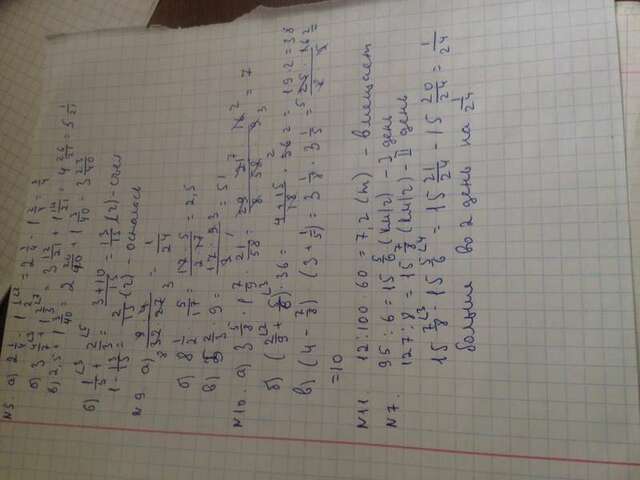 №5. а) 2 1/4 - 1 1/2 = 2 1/4 - 1 2/4 = 3/4
б) 3 4/7 + 1 2/3 = 3 12/21 + 1 14/21 = 4 26/21 = 5 1/21
в) 2,5 + 1 3/40 = 2 20/40 + 1 3/40 = 3 23/40
б) 1/5 + 2/3 = 3+10/15 = 13/15 (г) - съел
1 - 13/15 = 2/15 (г) - осталось
№9. а) 9·4/32·27 = 1/24
б) 8 1/2 · 5/17 = 17·5/2·17 = 2,5
в) 5 2/3 · 9 = 17·9/3·1 = 51
№10. а) 3 5/8 · 1 7/9 · 21/58 = 29/8 · 21/58 · 16/9 = 7
б) (2/9 + 5/6) · 36 = 4+15/18 · 36 = 19·2 = 38
в) (4 - 7/8) (3 + 1/5) = 3 1/8 · 3 1/5 = 25·16/8·5 =
=10
№11. 12:100·60 = 7,2 (т) - вмещает
№7. 95:6 = 15 5/6 (км/г) - I день
127:8 = 15 7/8 (км/г) - II день
15 7/8 - 15 5/6 = 15 21/24 - 15 20/24 = 1/24
больше во 2 день на 1/24